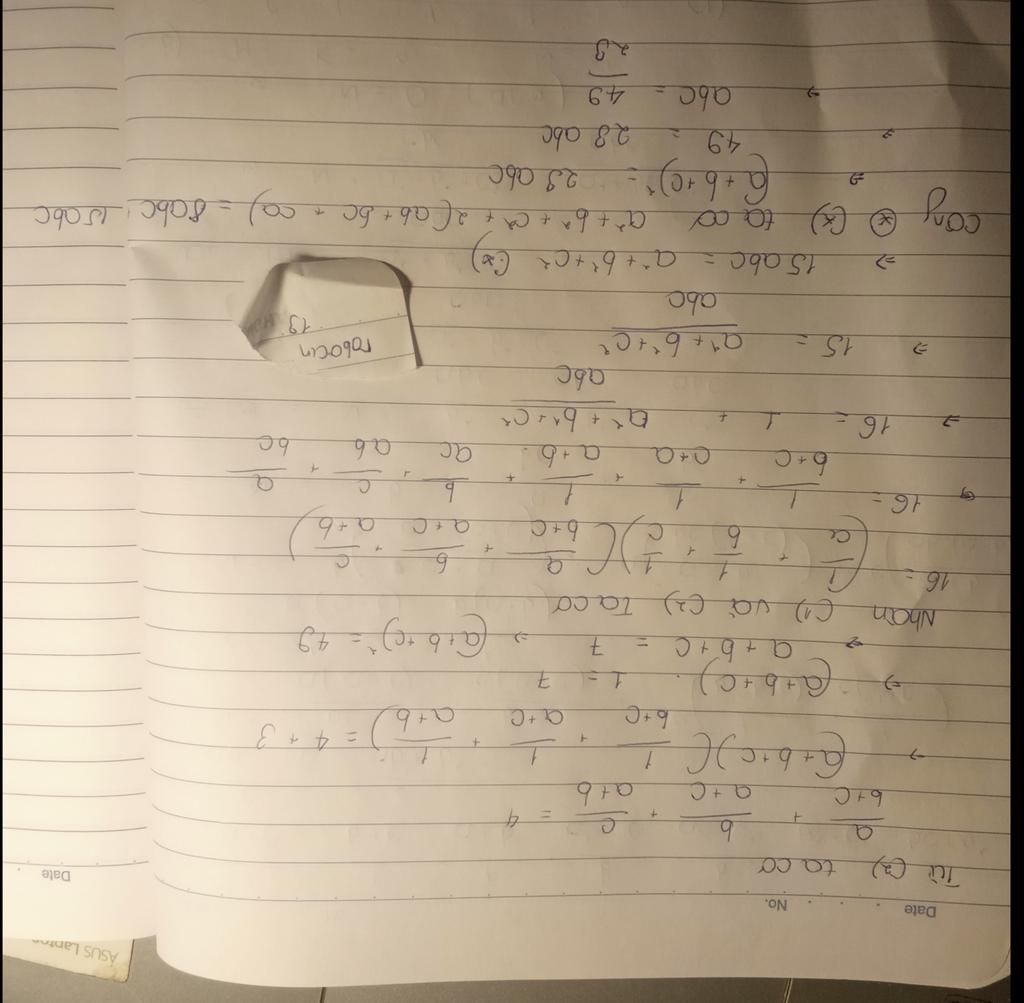 Date . . . . No.
Từ (2) ta co
a/(b+c) + b/(a+c) + c/(a+b) = 4
→ (a+b+c)(1/(b+c) + 1/(a+c) + 1/(a+b)) = 4 + 3
⇒ (a+b+c) . 1 = 7
⇒ a+b+c = 7 ⇒ (a+b+c)² = 49
Nhan (1) và (2) Ta co
16 = (1/a + 1/b + 1/c)(a/(b+c) + b/(a+c) + c/(a+b))
⇒ 16 = 1/(b+c) + 1/(c+a) + 1/(a+b) + b/ac + c/ab + a/bc
⇒ 16 = 1 + (a²+b²+c²)/abc
⇒ 15 = (a²+b²+c²)/abc
⇒ 15abc = a²+b²+c² (*)
robocin
19
cộng ⊛ (*) ta co a²+b²+c²+2(ab+bc+ca) = 8abc+15abc
⇒ (a+b+c)² = 23abc
⇒ 49 = 23abc
⇒ abc = 49/23
Date
ASUS Lapto